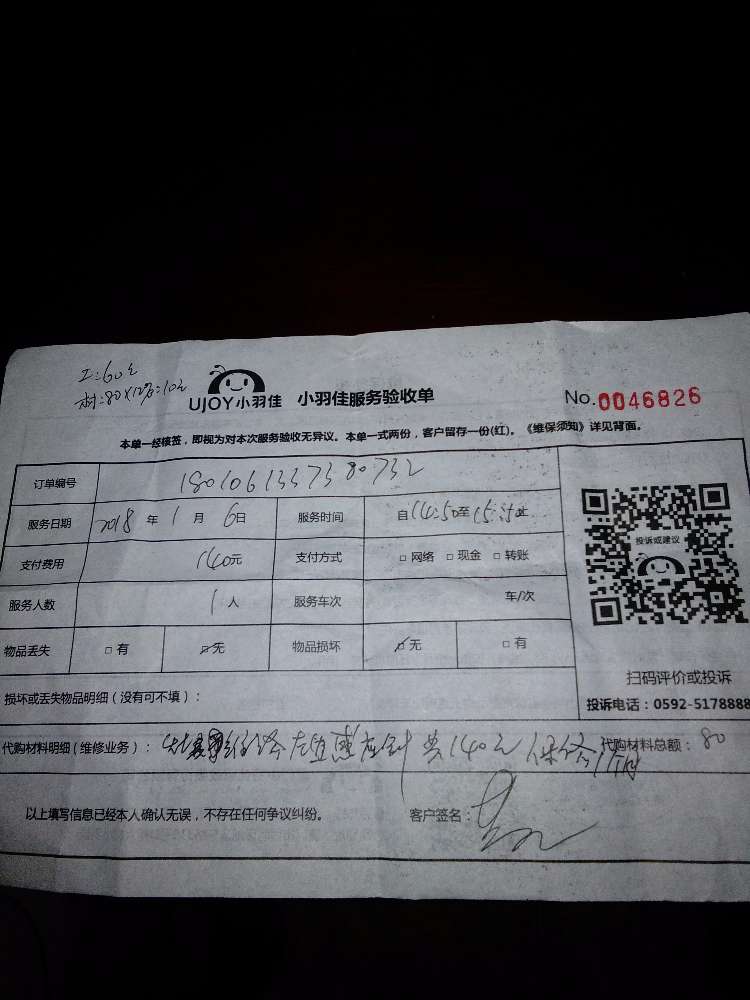 工:60元
材:80×12%=10元
UJOY小羽佳 小羽佳服务验收单 No.0046826
本单一经核签，即视为对本次服务验收无异议。本单一式两份，客户留存一份(红)。《维保须知》详见背面。
订单编号 1801061337380732
服务日期 2018 年 1 月 6 日 服务时间 自 14:50 至 15:
支付费用 140元 支付方式 □ 网络 □ 现金 □ 转账
服务人数 1 人 服务车次 车/次
物品丢失 □ 有 □ 无 物品损坏 □ 无 □ 有
投诉或建议
扫码评价或投诉
投诉电话：0592-5178888
损坏或丢失物品明细（没有可不填）：
代购材料明细（维修业务）： 感应针 共140元 保修1个月 代购材料总额： 80
以上填写信息已经本人确认无误，不存在任何争议纠纷。 客户签名：